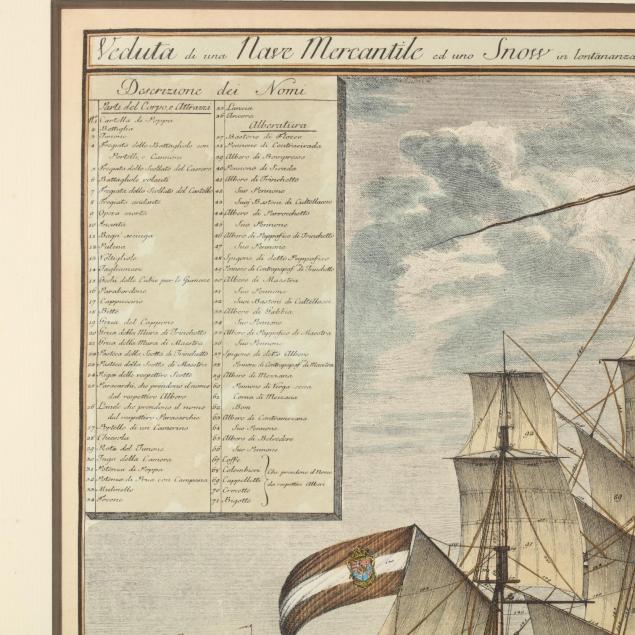 Veduta di una Nave Mercantile ed uno Snow in lontananza
Descrizione dei Nomi
Parti del Corpo, e Attrazzi
1 Cartella di Poppa
2 Battaglia
3 Timone
4 Fregata delle Battagliole con
Portelli, e Cannoni
5 Fregata dello Scollato del Cassero
6 Battagliole volanti
7 Fregata dello Scollato del Castello
8 Fregiato andante
9 Opera morta
10 Incinta
11 Bagn' asciuga
12 Palma
13 Voltigliole
14 Tagliamare
15 Occhi delle Cubie per le Gomone
16 Parabordone
17 Cappuccino
18 Bitte
19 Grua del Cappone
20 Grua della Mura di Trinchetto
21 Grua della Mura di Maestra
22 Pastica della Scotta di Trinchetto
23 Pastica della Scotta di Maestra
24 Rigge delle respettive Scotte
25 Parasarchi, che prendono il nome
dal respettivo Albero
26 Lande che prendono il nome
dal respettivo Parasarchio
27 Portello di un Camerino
28 Chiesola
29 Rota del Timone
30 Tuga della Camera
31 Patenza di Poppa
32 Patenza di Prua con Campana
33 Mulinello
34 Ancone
35 Lancia
36 Ancora
Alberatura
37 Bastone di Flocco
38 Pennone di Contracivada
39 Albero di Bompresso
40 Pennone di Civada
41 Albero di Trinchetto
42 Suo Pennone
43 Suoi Bastoni di Coltellacci
44 Albero di Parrochetto
45 Suo Pennone
46 Albero di Pappafico di Trinchetto
47 Suo Pennone
48 Spigone di detto Pappafico
49 Pennone di Contrapapaf. di Trinchetto
50 Albero di Maestra
51 Suo Pennone
52 Suoi Bastoni di Coltellacci
53 Albero di Gabbia
54 Suo Pennone
55 Albero di Pappafico di Maestra
56 Suo Pennone
57 Spigone di detto Albero
58 Pennone di Contrapapaf. di Maestra
59 Albero di Mezzana
60 Pennone di Verga secca
61 Corna di Mezzana
62 Bom
63 Albero di Contramezzana
64 Suo Pennone
65 Albero di Belvedere
66 Suo Pennone
67 Coffe
68 Colombieri
69 Cappelletti
70 Crocette
71 Bigotte
Che prendono il Nome
da respettivi Alberi